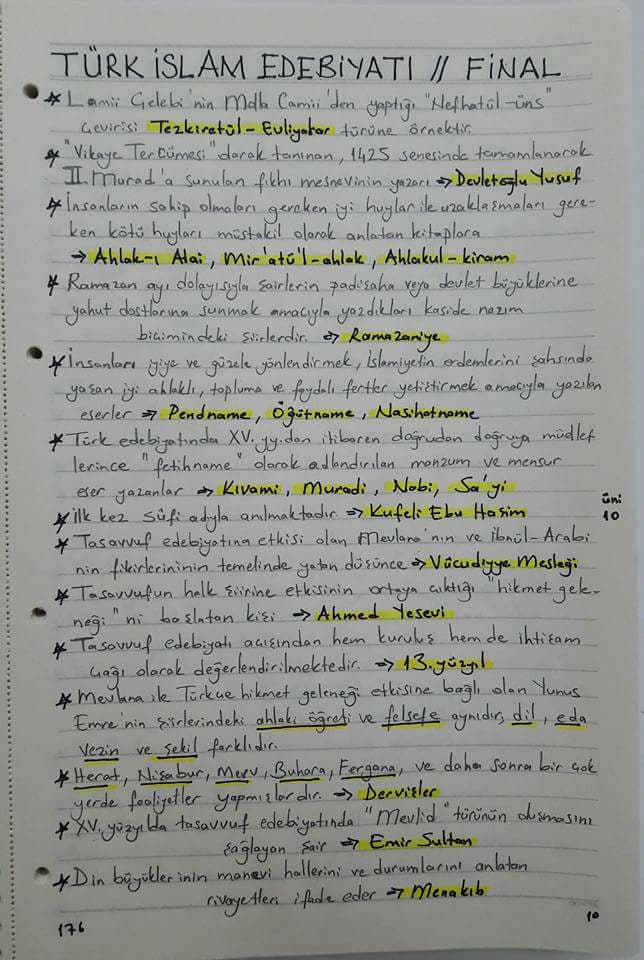 TÜRK İSLAM EDEBİYATI // FİNAL
* Lamii Çelebi'nin Molla Camii'den yaptığı "Nefhatül-üns"
çevirisi Tezkiratül-Evliyalar türüne örnektir.
* "Vikaye Tercümesi" olarak tanınan, 1425 senesinde tamamlanarak
II. Murad'a sunulan fıkhı mesnevinin yazarı ⇒ Devletoğlu Yusuf
* İnsanların sahip olmaları gereken iyi huylar ile uzaklaşmaları gere-
ken kötü huyları müstakil olarak anlatan kitaplara
⇒ Ahlak-ı Alai, Mir'atü'l-ahlak, Ahlakul-kiram
* Ramazan ayı dolayısıyla şairlerin padişaha veya devlet büyüklerine
yahut dostlarına sunmak amacıyla yazdıkları kaside nazım
biçimindeki şiirlerdir. ⇒ Ramazaniye
* İnsanları iyiye ve güzele yönlendirmek, İslamiyetin erdemlerini şahsında
yaşan iyi ahlaklı, topluma ve faydalı fertler yetiştirmek amacıyla yazılan
eserler ⇒ Pendname, Öğütname, Nasihatname
* Türk edebiyatında XV. yy.dan itibaren doğrudan doğruya müellef
lerince "fetihname" olarak adlandırılan manzum ve mensur
eser yazanlar ⇒ Kıvami, Muradi, Nabi, Sa'yi
* İlk kez sûfi adıyla anılmaktadır ⇒ Kufeli Ebu Haşim
üni
10
* Tasavvuf edebiyatına etkisi olan Mevlana'nın ve ibnül-Arabi
nin fikirlerininin temelinde yatan düşünce ⇒ Vücudiyye Mesleği
* Tasavvufun halk şiirine etkisinin ortaya çıktığı "hikmet gele-
neği"ni başlatan kişi ⇒ Ahmed Yesevi
* Tasavvuf edebiyatı açısından hem kuruluş hem de ihtişam
çağı olarak değerlendirilmektedir. ⇒ 13. yüzyıl
* Mevlana ile Türkçe hikmet geleneği etkisine bağlı olan Yunus
Emre'nin şiirlerindeki ahlaki öğreti ve felsefe aynıdır, dil, eda
vezin ve şekil farklıdır.
* Herat, Nişabur, Merv, Buhara, Fergana, ve daha sonra bir çok
yerde faaliyetler yapmışlardır. ⇒ Dervişler
* XV. yüzyılda tasavvuf edebiyatında "Mevlid" türünün oluşmasını
sağlayan şair ⇒ Emir Sultan
* Din büyüklerinin manevi hallerini ve durumlarını anlatan
rivayetleri ifade eder ⇒ Menakıb
176
10